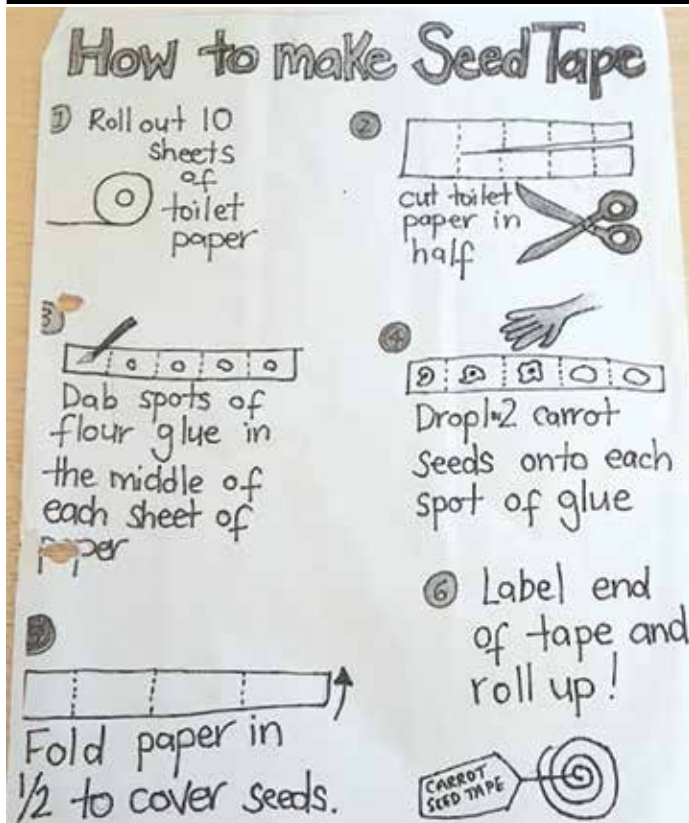 How to make Seed Tape
① Roll out 10
sheets
of
toilet
paper
②
cut toilet
paper in
half
3
Dab spots of
flour glue in
the middle of
each sheet of
paper
④
Drop 1-2 carrot
seeds onto each
spot of glue
5
Fold paper in
1/2 to cover seeds.
⑥ Label end
of tape and
roll up!
CARROT
SEED TAPE